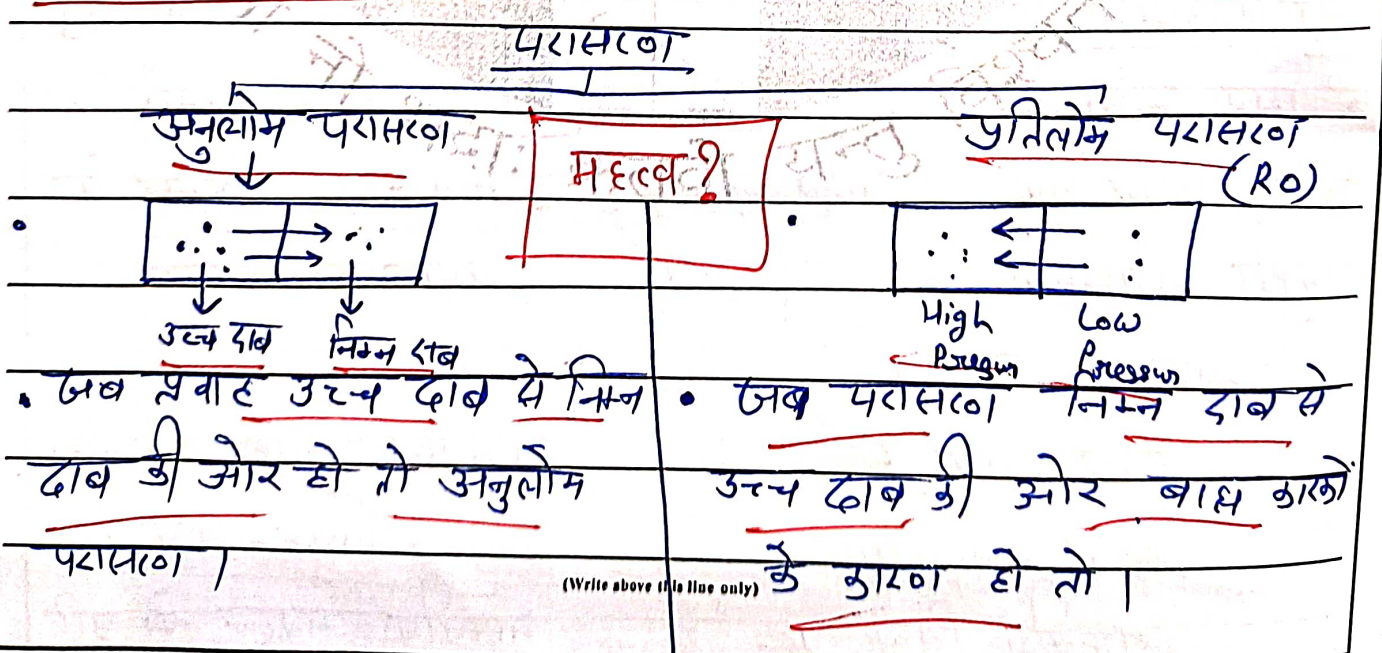 परासरण
अनुलोम परासरण
महत्व?
प्रतिलोम परासरण
(RO)
उच्च दाब निम्न दाब
High Low
Pressure
• जब प्रवाह उच्च दाब से निम्न
दाब की ओर हो तो अनुलोम
परासरण।
• जब परासरण निम्न दाब से
उच्च दाब की ओर बाह्य कारकों
के कारण हो तो।
(Write above this line only)